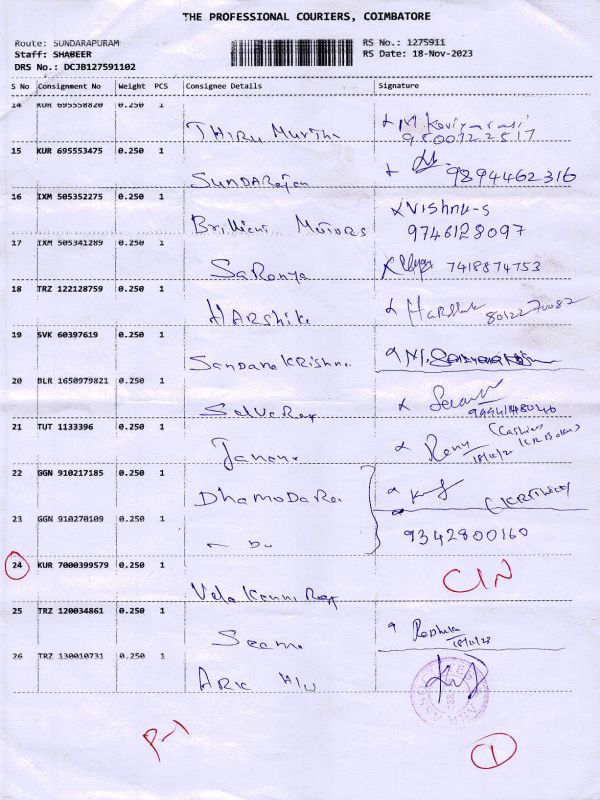 THE PROFESSIONAL COURIERS, COIMBATORE
Route: SUNDARAPURAM
Staff: SHABEER
DRS No.: DCJB127591102
RS No.: 1275911
RS Date: 18-Nov-2023
S No Consignment No Weight PCS Consignee Details Signature
14 KUR 695558820 0.250 1 THIRU Murthi M. Kaviyarasi
9500122517
15 KUR 695553475 0.250 1 SUNDARajan 9894462316
16 IXM 505352275 0.250 1 Brilliant MOTORS Vishnu-s
9746128097
17 IXM 505341289 0.250 1 SaRanya 7418874753
18 TRZ 122128759 0.250 1 HARshika 8012270082
19 SVK 60397619 0.250 1 Sandana KRishna
20 BLR 1650979821 0.250 1 SelvaRaj
21 TUT 1133396 0.250 1 Janani (Cashier
22 GGN 910217185 0.250 1 DhamoDaRa
23 GGN 910270109 0.250 1 9342800160
24 KUR 7000399579 0.250 1 CIN
25 TRZ 120034861 0.250 1 Seema Radhika
18/11/23
26 TRZ 130010731 0.250 1 ARK
P-1
1